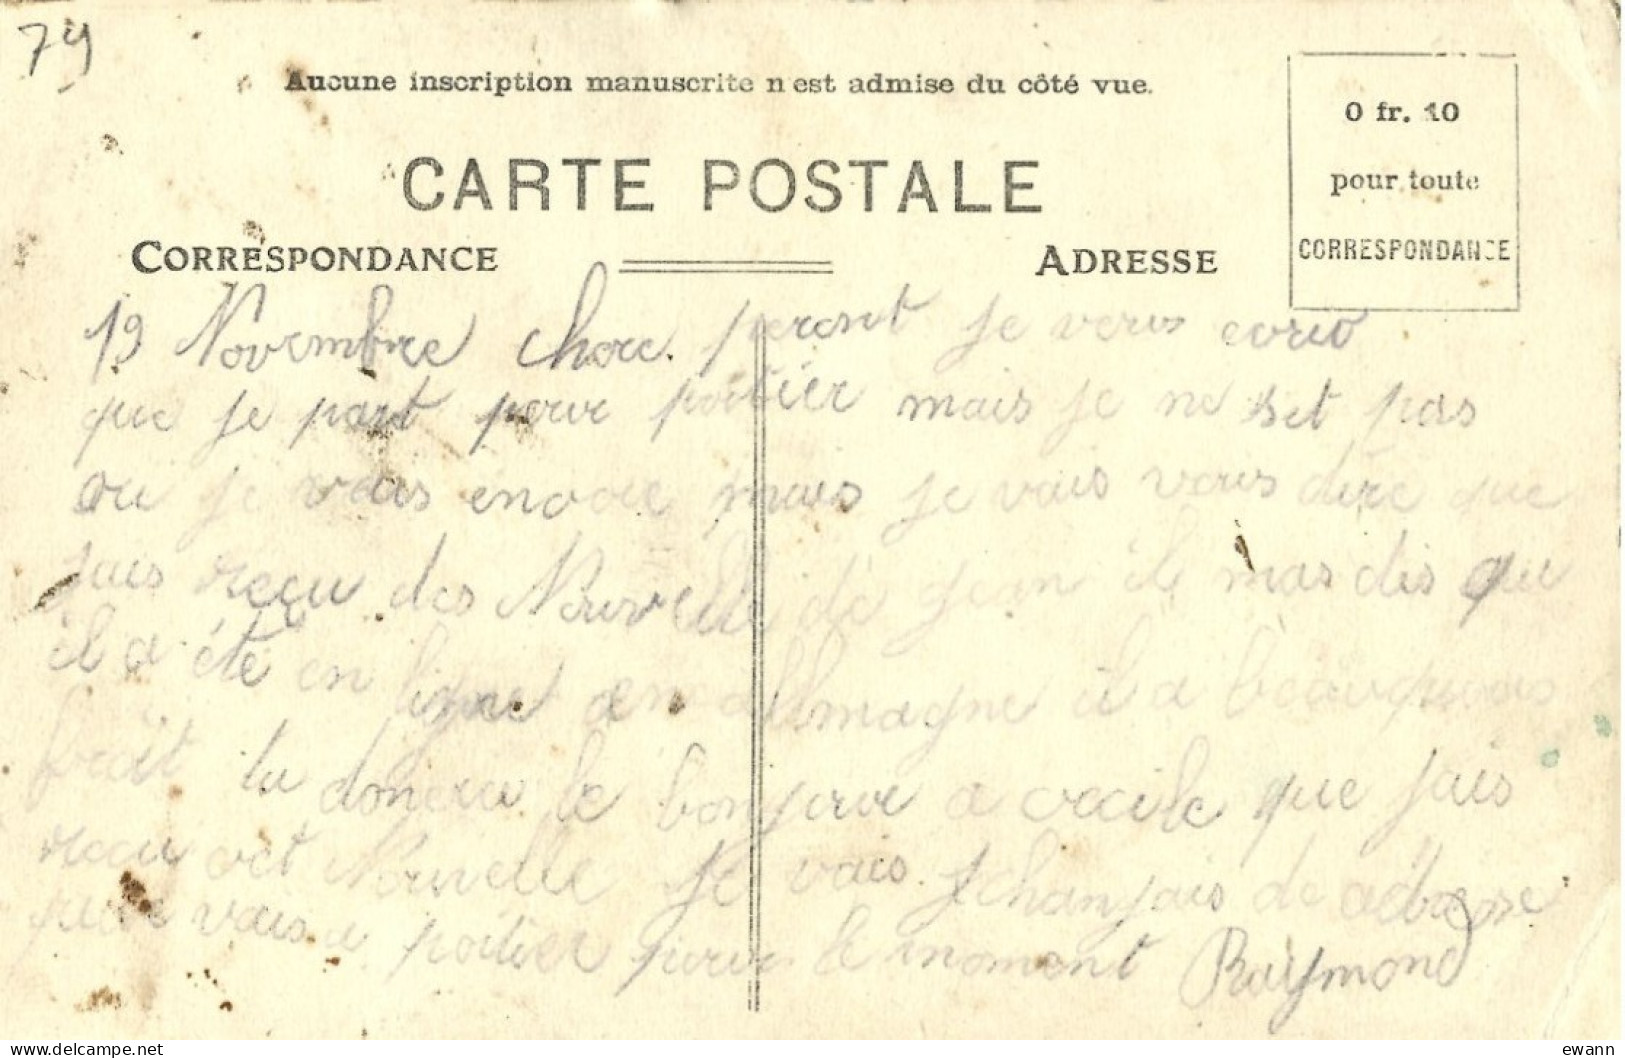 79
Aucune inscription manuscrite n'est admise du côté vue.
0 fr. 10
pour toute
CORRESPONDANCE
CARTE POSTALE
CORRESPONDANCE
ADRESSE
19 Novembre chere perent je vous ecrie
que je part pour poitier mais je ne set pas
ou je vais encore mais je vais vous dire que
jais reçu des Nouvelle de jean il mas dis que
il a été en ligne a en allemagne il a beauqous
froit tu donera le bonjour a cecile que jais
recu cet Nouvelle Je vais chanjais de adresse
vais a poitier pour le moment Raymond
ewann